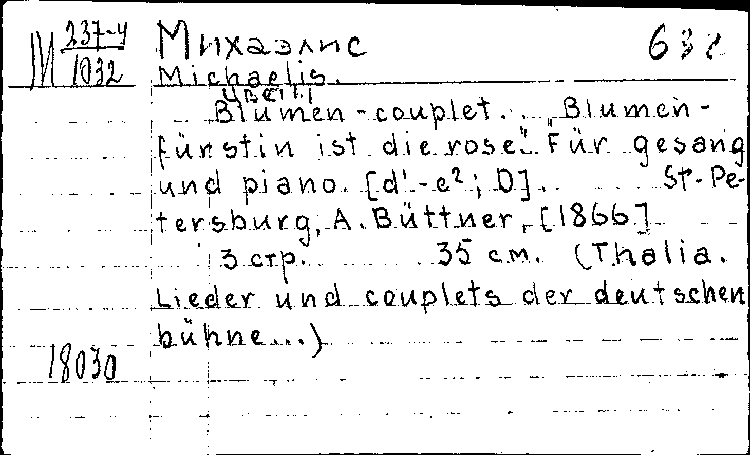 М 237-4 Михаэлис
1032 Michaelis.
Цветы
Blumen-couplet. "Blumen-
fürstin ist die rose". Für gesang
und piano. [d'-e²; D]. St-Pe-
tersburg, A. Büttner, [1866]
3 стр. 35 см. (Thalia.
Lieder und couplets der deutschen
bühne...)
18030